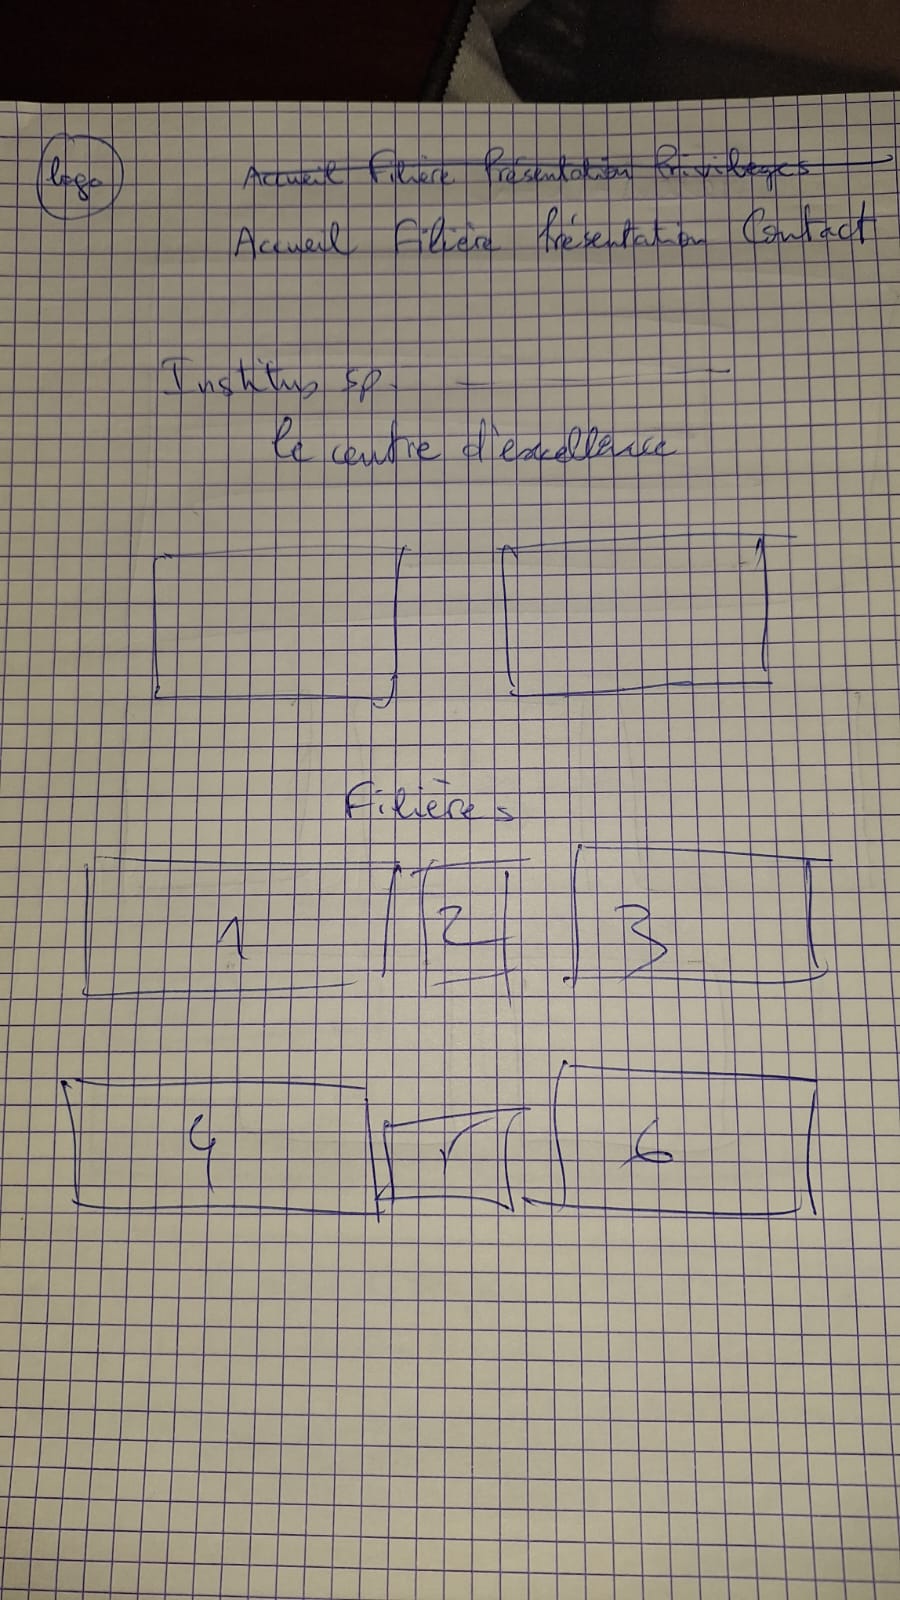 logo
Accueil Filière Présentation Privileges
Accueil Filière Présentation Contact
Institus sp.
le centre d'excellence
Filières
1 2 3
4 5 6